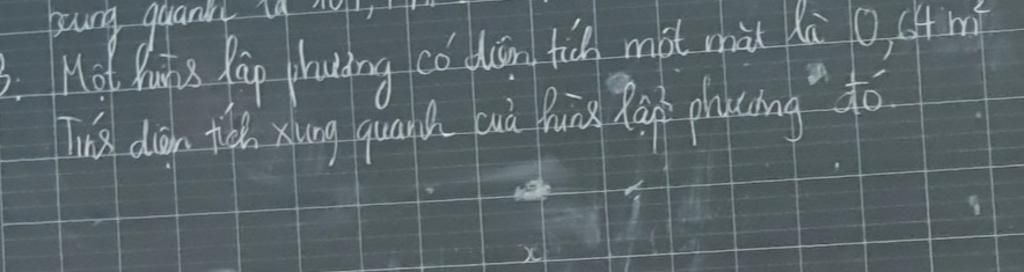 xung quanh là
3. Một hình lập phương có diện tích một mặt là 0,64 m²
Tính diện tích xung quanh của hình lập phương đó.
x